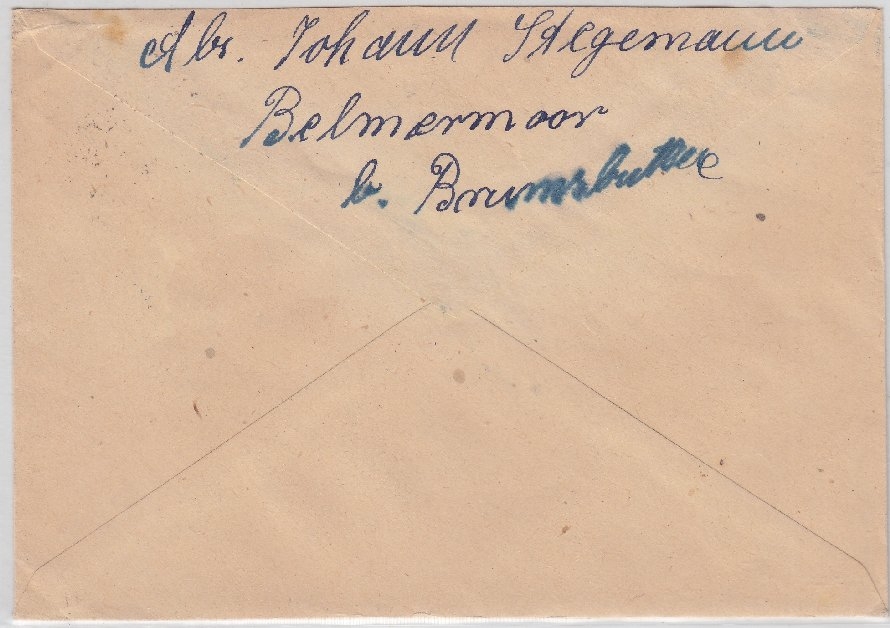 Abs. Johann Stegemann
Belmermoor
b.